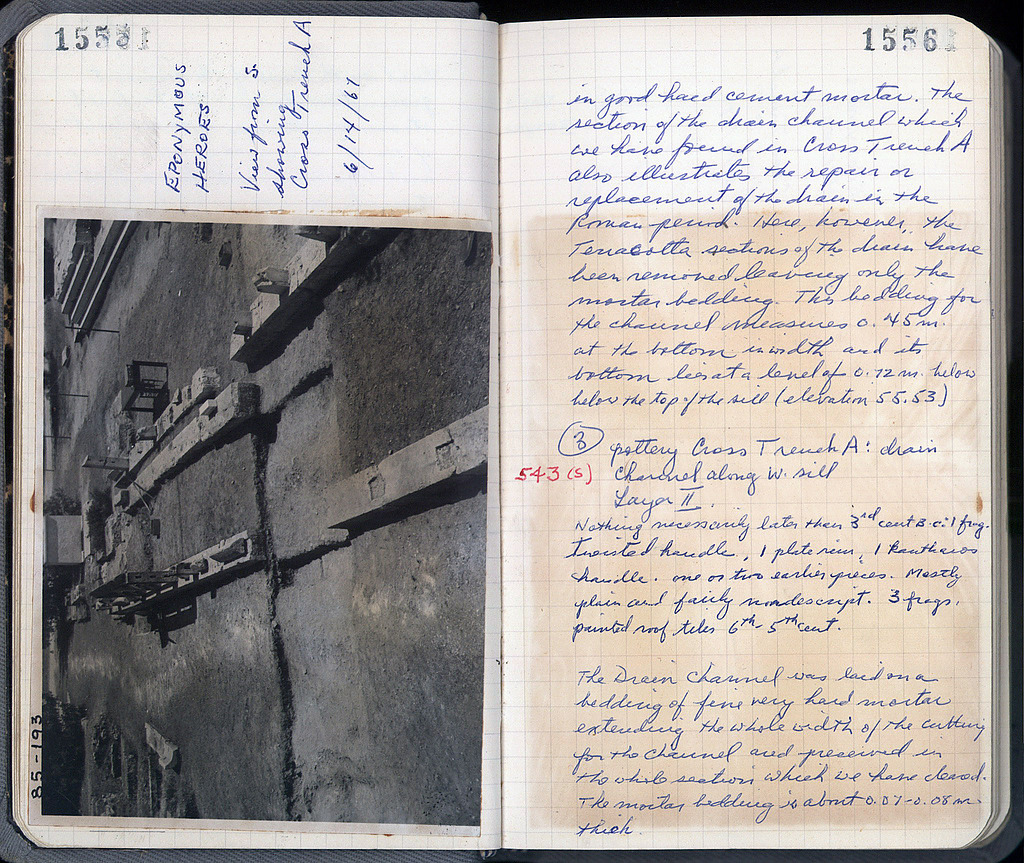 15551
EPONYMOUS
HEROES
View from S.
showing
Cross Trench A
6/14/67
85-193
15561
in good hard cement mortar. The
section of the drain channel which
we have found in Cross Trench A
also illustrates the repair or
replacement of the drain in the
Roman period. Here, however, the
Terracotta sections of the drain have
been removed leaving only the
mortar bedding. This bedding for
the channel measures 0.45 m.
at the bottom in width and its
bottom lies at a level of 0.72 m. below
below the top of the sill (elevation 55.53)
3 pottery Cross Trench A: drain
543 (S) channel along W. sill
Layer II.
Nothing necessarily later than 3rd cent B.C. 1 frag.
twisted handle, 1 plate rim, 1 kantharos
handle. one or two earlier pieces. Mostly
plain and fairly nondescript. 3 frags.
painted roof tiles 6th-5th cent.
The Drain Channel was laid on a
bedding of fine very hard mortar
extending the whole width of the cutting
for the channel and preserved in
the whole section which we have cleared.
The mortar bedding is about 0.07-0.08 m
thick.